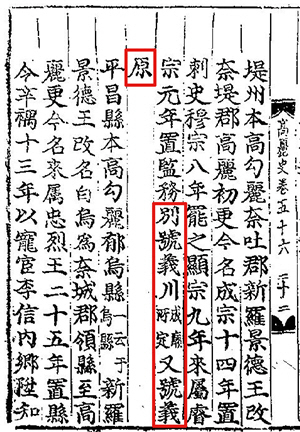 高麗史卷五十六 二十二
堤州本高勾麗奈吐郡新羅景德王改
奈堤郡高麗初更今名成宗十四年置
刺史穆宗八年罷之顯宗九年來屬睿
宗元年置監務別號義川成廟所定又號義
原
平昌縣本高勾麗郁烏縣一云于烏縣新羅
景德王改名白烏為奈城郡領縣至高
麗更今名來屬忠烈王二十五年置縣
令辛禑十三年以寵宦李信內鄉陞知